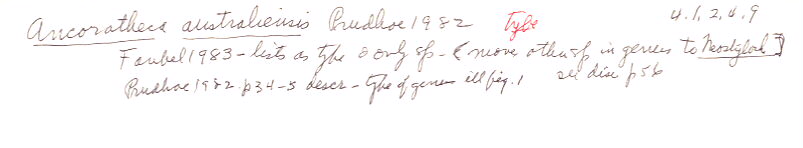 Ancoratheca australiensis Prudhoe 1982 Type 4.1,2,6.9
Faubel 1983 - lists as type & only sp - (move other sp in genus to Neostyloch]
Prudhoe 1982 p34-5 descr - type of genus ill fig. 1 see disc p56